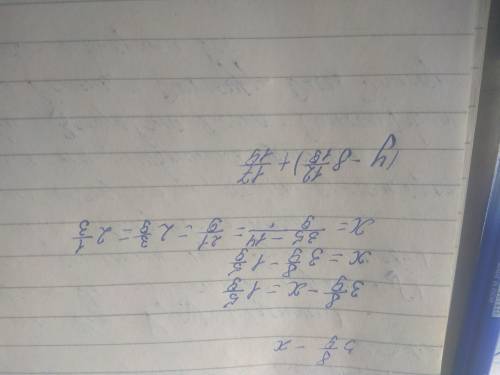 3 8/9 - x
3 8/9 - x = 1 5/9
x = 3 8/9 - 1 5/9
x = 35 - 14/9 = 21/9 = 2 3/9 = 2 1/3
(y - 8 12/19) + 17/14